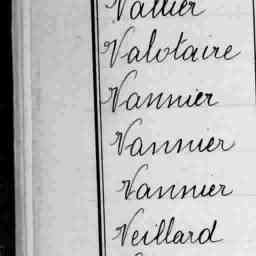 Vallier
Valotaire
Vannier
Vannier
Vannier
Veillard